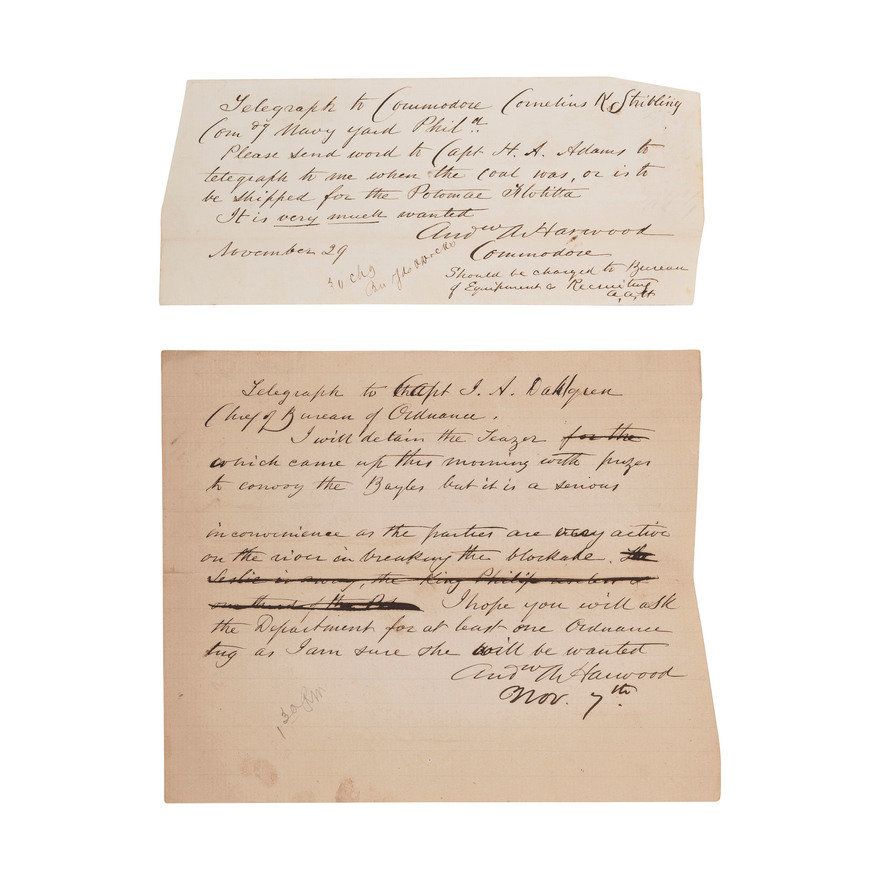 Telegraph to Commodore Cornelius K. Stribling
Comdg Navy Yard Phila
Please send word to Capt H. A. Adams to
telegraph to me when the coal was, or is to
be shipped for the Potomac Flotitta
It is very much wanted
Andw A Harwood
Commodore
November 29
30 chg
Should be charged to Bureau
of Equipment & Recruiting
A, A, H
Telegraph to Capt J. A. Dahlgren
Chief of Bureau of Ordnance.
I will detain the Teazer for the
which came up this morning with prizes
to convoy the Bayles but it is a serious
inconvenience as the parties are very active
on the river in breaking the blockade. The
Leslie is away, the King Philip
one third of the I hope you will ask
the Department for at least one Ordnance
tug as I am sure she will be wanted
Andw A Harwood
Nov. 7th
1,30 PM